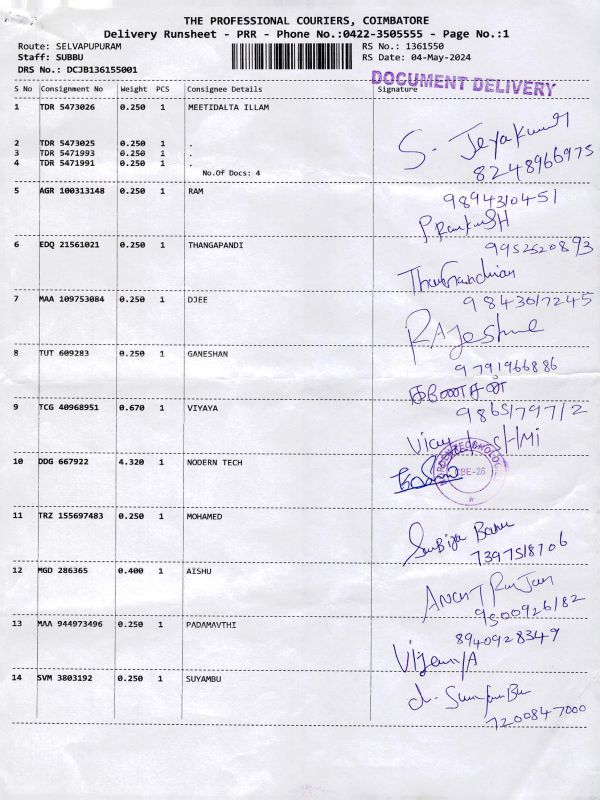 THE PROFESSIONAL COURIERS, COIMBATORE
Delivery Runsheet - PRR - Phone No.:0422-3505555 - Page No.:1
Route: SELVAPUPURAM RS No.: 1361550
Staff: SUBBU RS Date: 04-May-2024
DRS No.: DCJB136155001
DOCUMENT DELIVERY
S No Consignment No Weight PCS Consignee Details Signature
1 TDR 5473026 0.250 1 MEETIDALTA ILLAM
2 TDR 5473025 0.250 1 .
3 TDR 5471993 0.250 1 .
4 TDR 5471991 0.250 1 .
No.Of Docs: 4
S. Jeyakumar
8248966975
5 AGR 100313148 0.250 1 RAM
9894310451
6 EDQ 21561021 0.250 1 THANGAPANDI
9952520893
Thangandian
7 MAA 109753084 0.250 1 DJEE
9843017245
RAJeshne
8 TUT 609283 0.250 1 GANESHAN
9791966886
9 TCG 40968951 0.670 1 VIYAYA
9865179712
10 DDG 667922 4.320 1 NODERN TECH
CBE-26
11 TRZ 155697483 0.250 1 MOHAMED
Banu
7397518706
12 MGD 286365 0.400 1 AISHU
9500926182
13 MAA 944973496 0.250 1 PADAMAVTHI
8940928349
14 SVM 3803192 0.250 1 SUYAMBU
7200847000